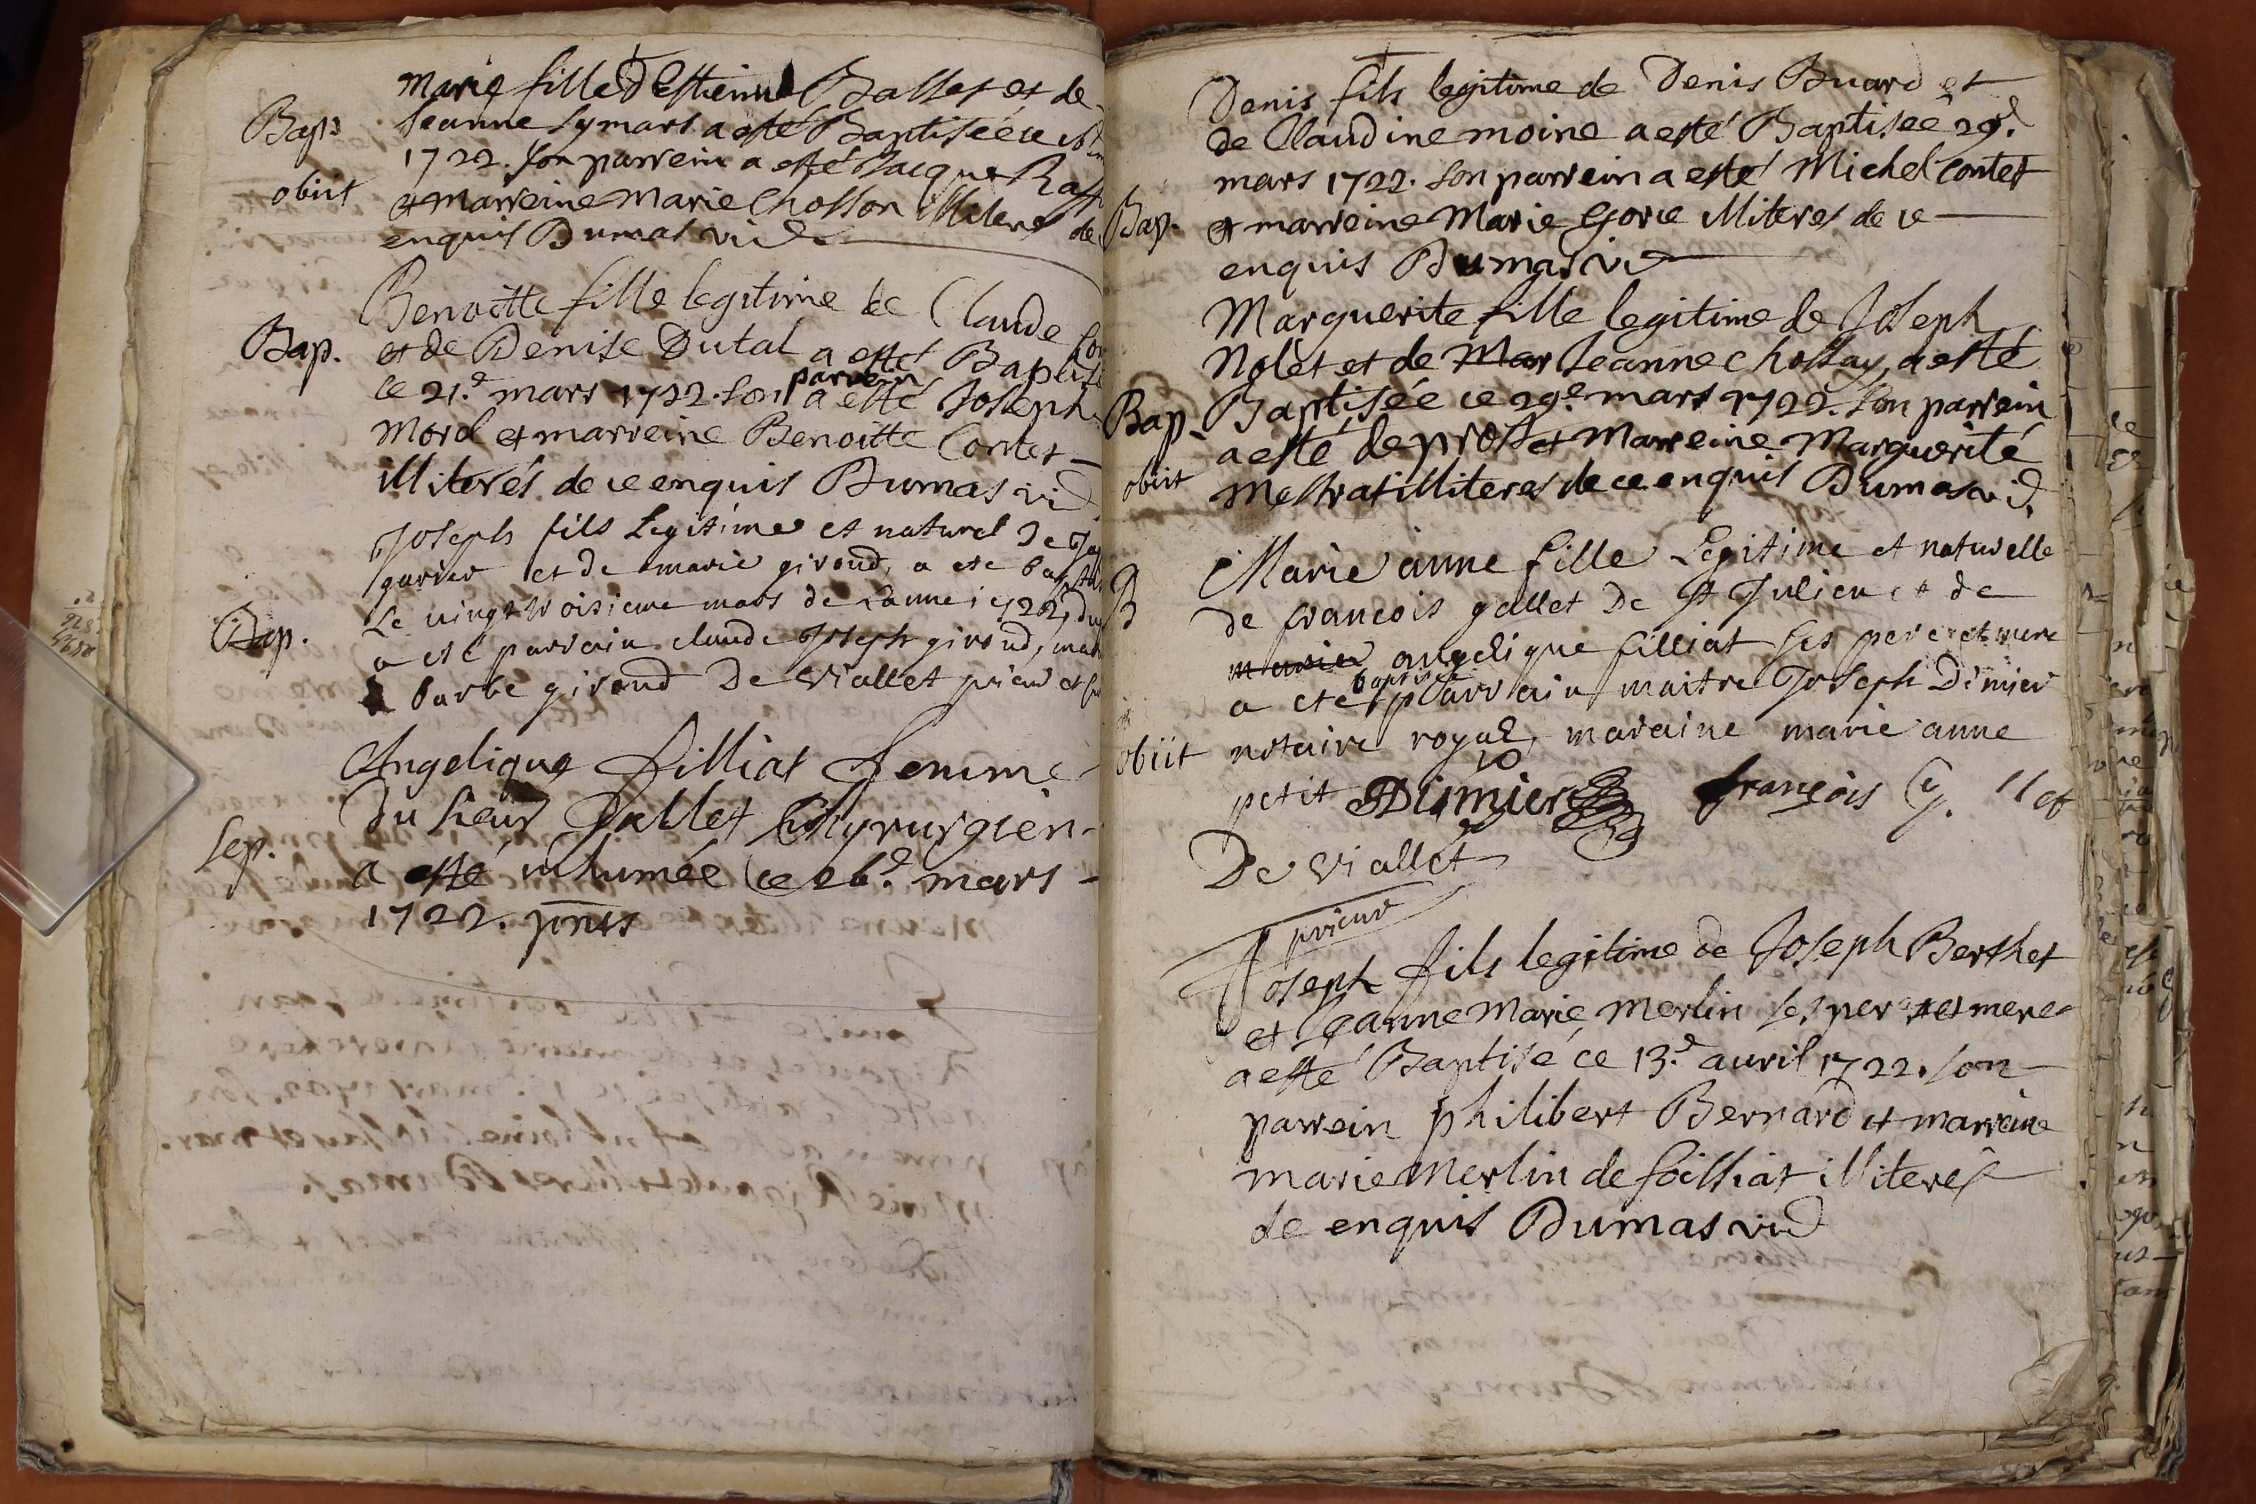 Marie fille d'Estienne Ballet et de
Bap.
Jeanne Symars a esté Baptiseé ce
1722. Son parrein a esté Jacque
obiit
et marreine Marie Chosson illiteres de
enquis Dumas vic
Benoitte fille legitime de Claude
Bap.
et de Denise Dutal a esté Baptise
ce 21.e mars 1722. Son parrein a esté Joseph
Morel et marreine Benoitte Contet
illiterés de ce enquis Dumas vic
Joseph fils Legitime et naturel De
gurier et de marie giroud, a ete bap
Le vingt troisieme mars de Lannee 1722,
Bap.
a eté parrain claude Joseph giroud, mar
barbe giroud De Viallet prieur et
Angelique filliat femme
Du sieur Gallet Chyrurgien
Sep.
a esté inhumée ce 26.e mars
1722. pnts
Denis fils legitime de Denis Buard et
de Claudine moine a esté Baptiseé 29.e
mars 1722. Son parrein a esté Michel Contet
Bap.
et marreine Marie Gorce illiteres de ce
enquis Dumas vic
Marguerite fille legitime de Joseph
Nolet et de Mar Jeanne Chossay, a esté
Bap.
Baptisée ce 29.e mars 1722. Son parrein
a esté de prost et Marreine Marguerité
obiit
Mestrat illiteres de ce enquis Dumas vic
Marie anne fille Legitime et naturelle
B
de francois gallet De St Julien et de
angelique filliat ses pere et mere
a ete baptisée parrain maitre Joseph Dimier
obiit
notaire royal, maraine marie anne
petit Dimier françois G. llet
De Viallet
prieur
Joseph fils legitime de Joseph Berthet
et Jeanne Marie Merlin ses pere et mere
a esté Baptisé ce 13.e auril 1722. Son
parrein philibert Bernard et marreine
marie Merlin de foissiat illiterés
de enquis Dumas vic